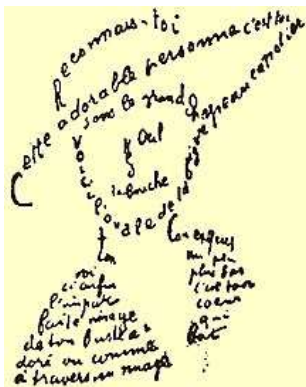 Reconnais-toi
Cette adorable personne c'est toi
sous le grand chapeau canotier
Œil
la bouche
Voici l'ovale de ta figure
ton
cou
exquis
voici enfin
l'imparfaite image
de ton buste a
doré vu comme
à travers un nuage
un peu
plus bas
c'est ton
coeur
qui
bat